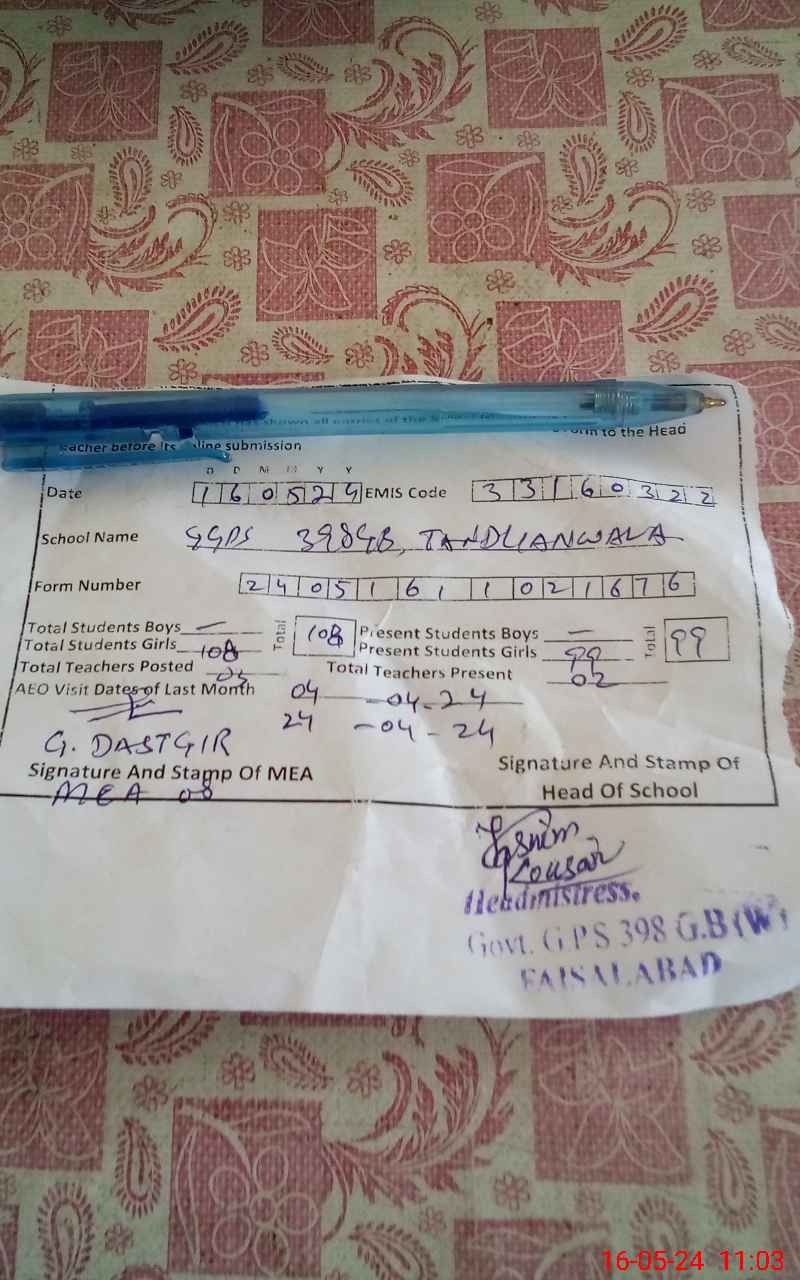 has shown all entries of the School
Form to the Head
teacher before its online submission
D D M M Y Y
Date 160524 EMIS Code 33160322
School Name GGPS 398GB, TANDLIANWALA
Form Number 24051611021676
Total Students Boys — Total 108 Present Students Boys — Total 99
Total Students Girls 108 Present Students Girls 99
Total Teachers Posted 03 Total Teachers Present 02
AEO Visit Dates of Last Month 04-04-24
24-04-24
G. DASTGIR
Signature And Stamp Of MEA Signature And Stamp Of
MEA 08 Head Of School
Kousar
Headmistress.
Govt. G.P.S 398 G.B (W)
FAISALABAD
16-05-24 11:03